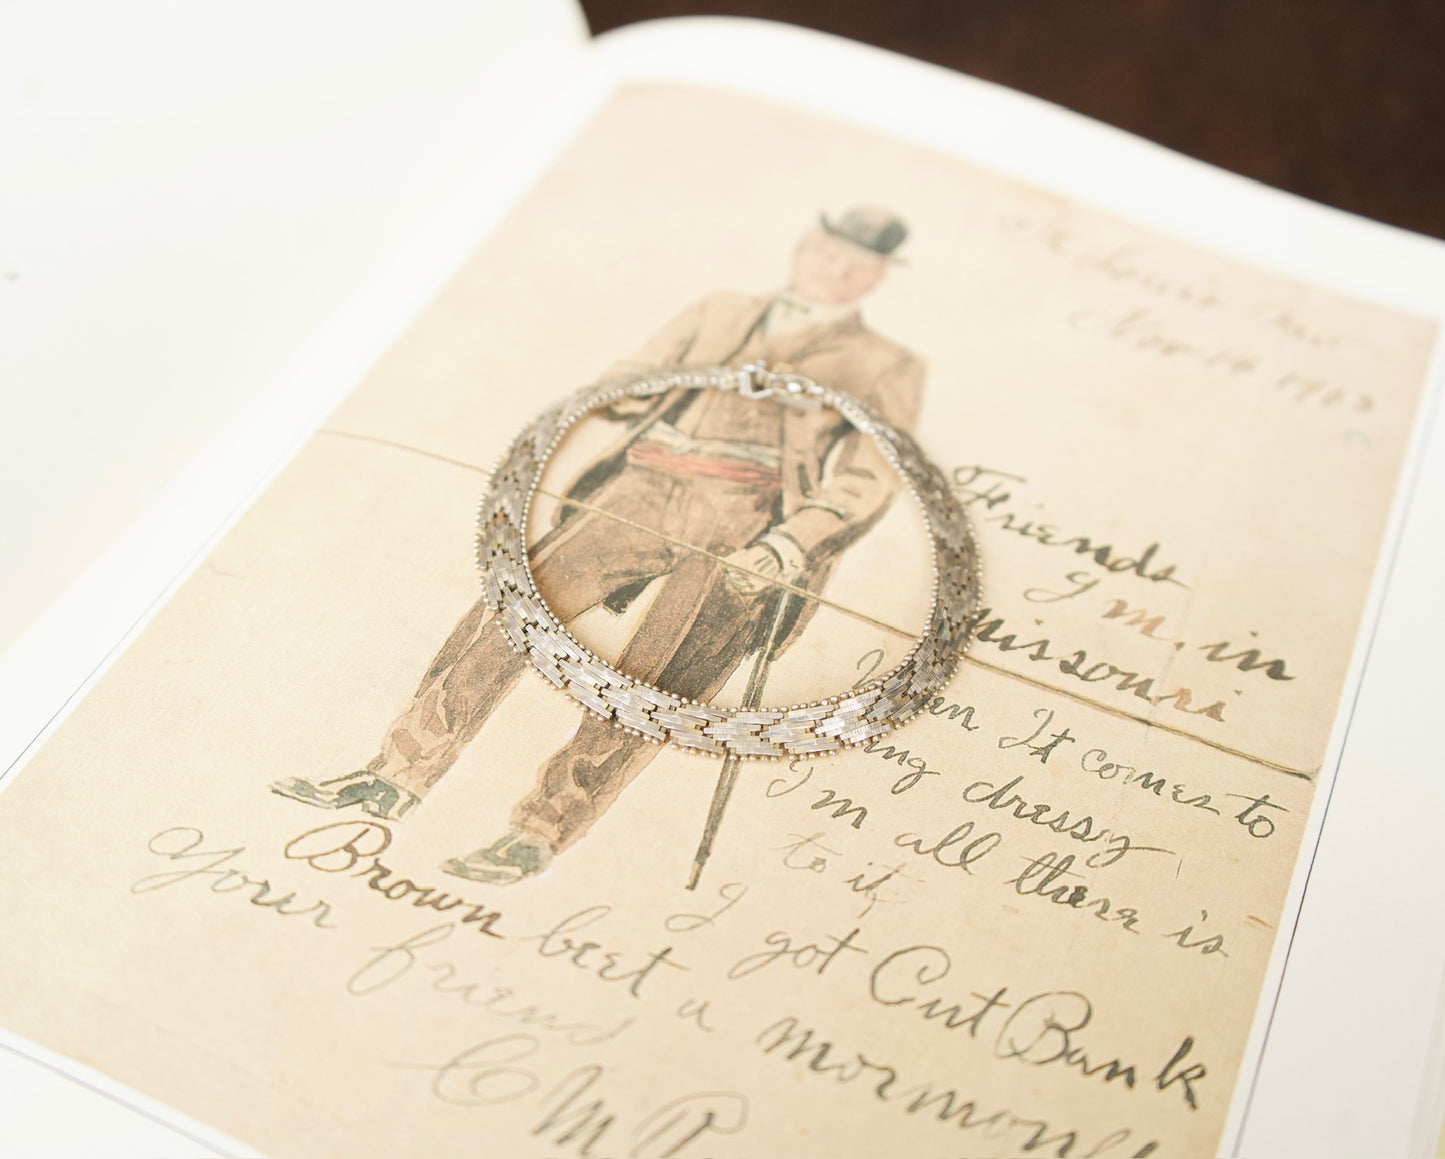 St Louis Mo
Nov 14 1903
Friends
I m. in
Missouri
When It comes to
ing dressy
I'm all there is
to it
I got Cut Bank
Brown beet a mormon
Your friend
CMR